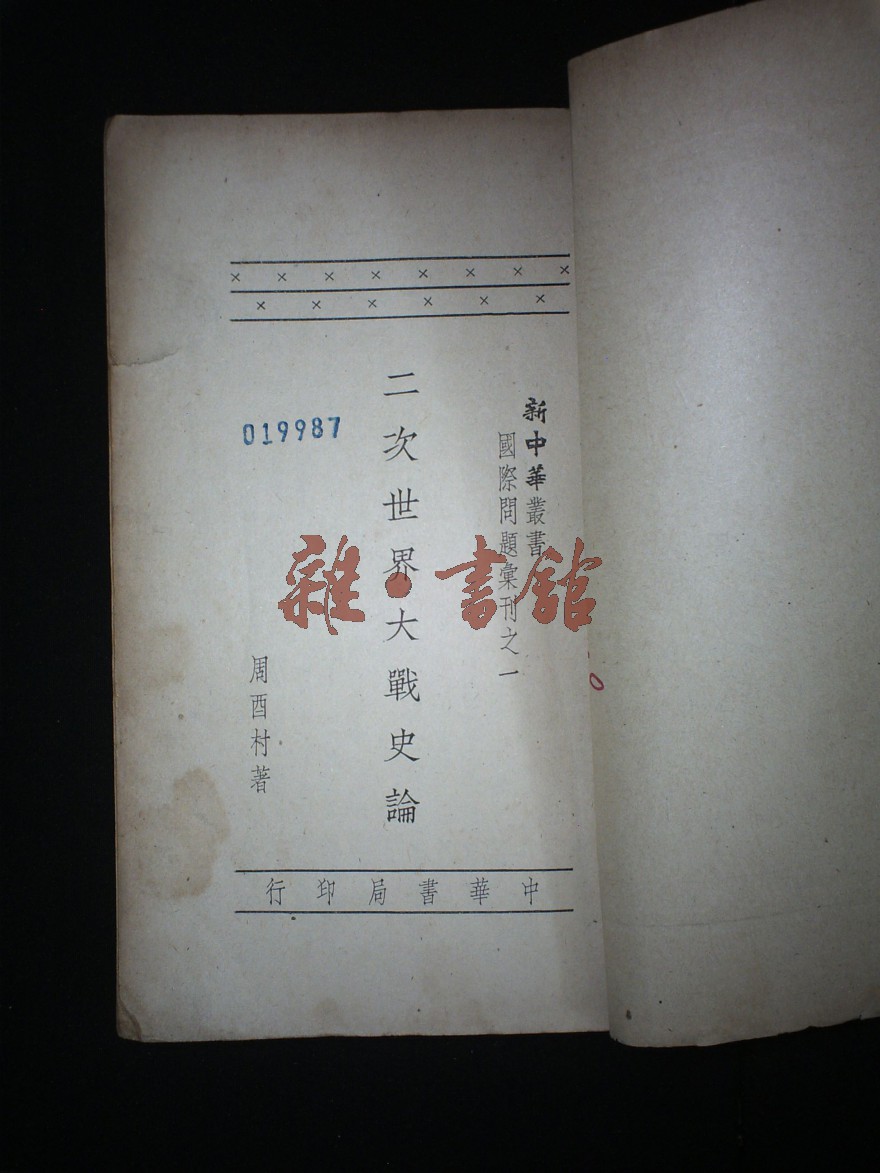 新中華叢書
國際問題彙刊之一
二次世界大戰史論
019987
周酉村著
中華書局印行
雜·書館